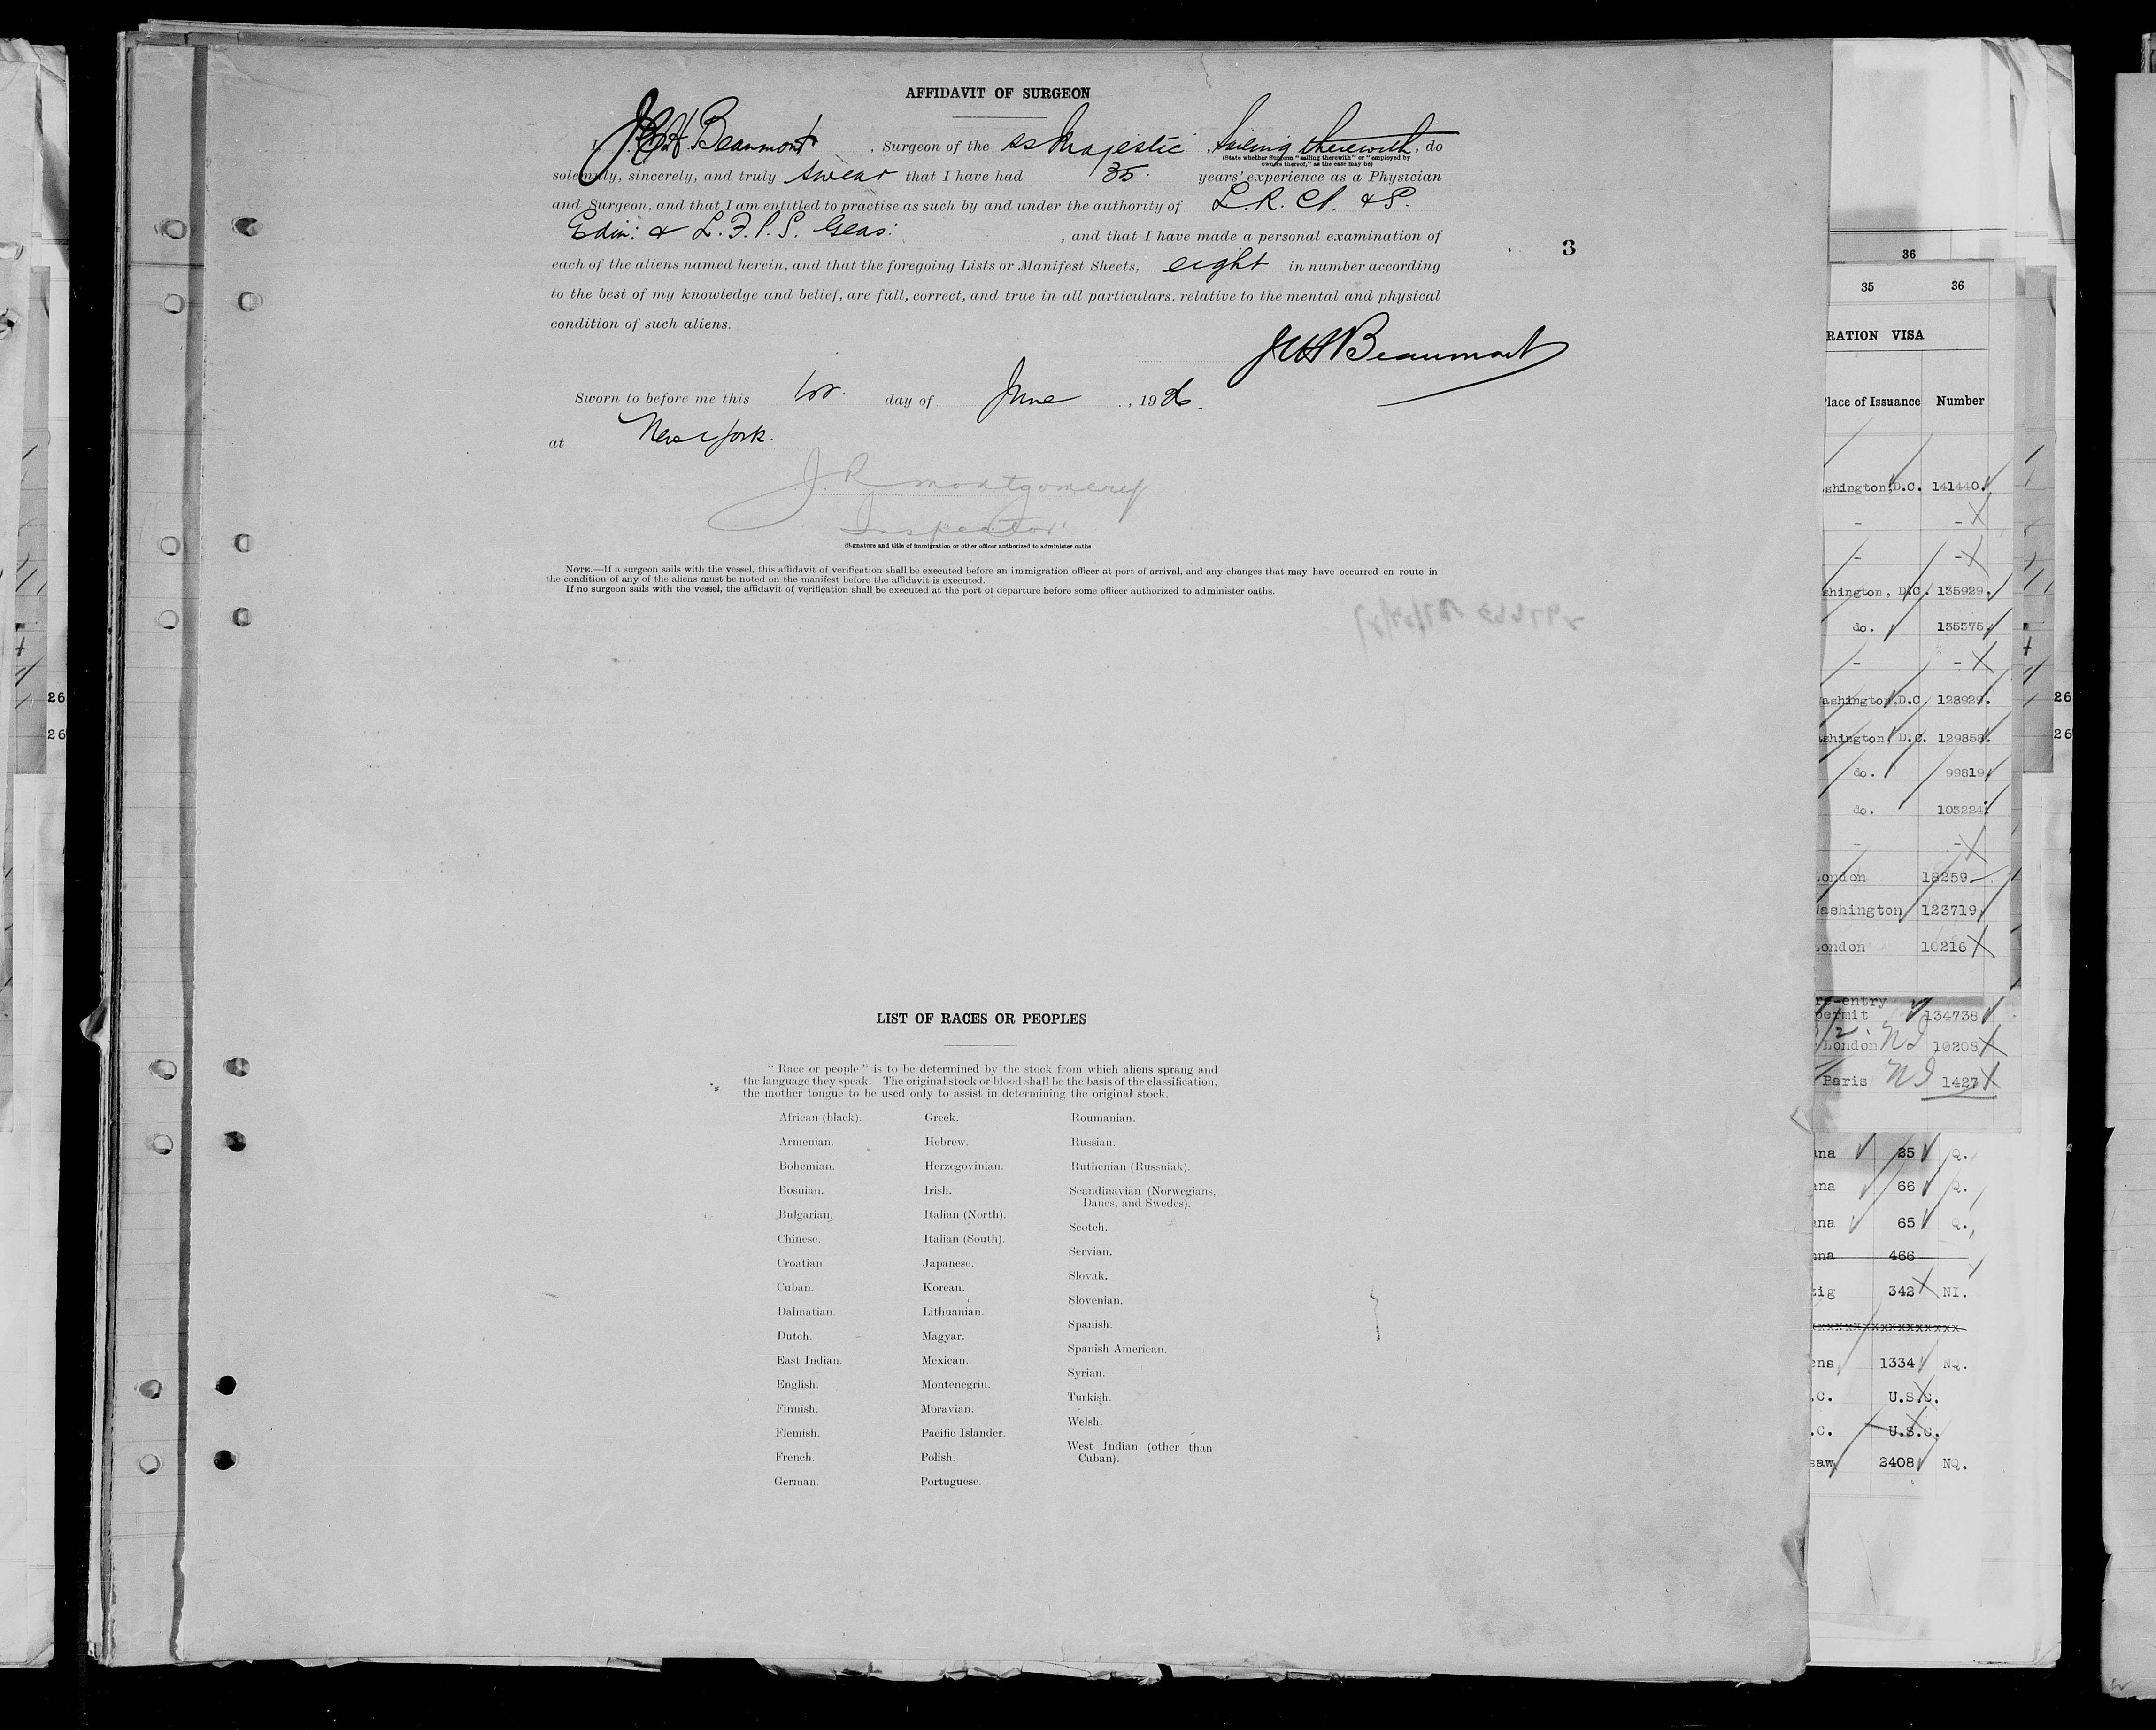 AFFIDAVIT OF SURGEON
I, J.C.H. Beaumont, Surgeon of the ss Majestic, Sailing therewith, do
(State whether Surgeon "sailing therewith" or "employed by
owners thereof," as the case may be)
solemnly, sincerely, and truly swear that I have had 35 years' experience as a Physician
and Surgeon, and that I am entitled to practise as such by and under the authority of L.R.C.P. & S.
Edin: & L.F.P.S. Glas: , and that I have made a personal examination of
each of the aliens named herein, and that the foregoing Lists or Manifest Sheets, eight in number according
to the best of my knowledge and belief, are full, correct, and true in all particulars, relative to the mental and physical
condition of such aliens.
3
JCHBeaumont
Sworn to before me this day of June, 1926.
at New York.
J. R Montgomery
Inspector
(Signature and title of immigration or other officer authorized to administer oaths
NOTE.—If a surgeon sails with the vessel, this affidavit of verification shall be executed before an immigration officer at port of arrival, and any changes that may have occurred en route in
the condition of any of the aliens must be noted on the manifest before the affidavit is executed.
If no surgeon sails with the vessel, the affidavit of verification shall be executed at the port of departure before some officer authorized to administer oaths.
LIST OF RACES OR PEOPLES
"Race or people" is to be determined by the stock from which aliens sprang and
the language they speak. The original stock or blood shall be the basis of the classification,
the mother tongue to be used only to assist in determining the original stock.
African (black).
Armenian.
Bohemian.
Bosnian.
Bulgarian.
Chinese.
Croatian.
Cuban.
Dalmatian.
Dutch.
East Indian.
English.
Finnish.
Flemish.
French.
German.
Greek.
Hebrew.
Herzegovinian.
Irish.
Italian (North).
Italian (South).
Japanese.
Korean.
Lithuanian.
Magyar.
Mexican.
Montenegrin.
Moravian.
Pacific Islander.
Polish.
Portuguese.
Roumanian.
Russian.
Ruthenian (Russniak).
Scandinavian (Norwegians,
Danes, and Swedes).
Scotch.
Servian.
Slovak.
Slovenian.
Spanish.
Spanish American.
Syrian.
Turkish.
Welsh.
West Indian (other than
Cuban).
36
35 36
RATION VISA
Place of Issuance Number
shington, D.C. 141440.
- -
- -
shington, D.C. 135929.
do. 135375.
- -
ashington, D.C. 128929.
shington, D.C. 129858.
do. 99819
do. 103224
- -
London 18259
Washington 123719
London 10216
re-entry
permit 134738
London NI 10208
Paris NI 1427
na 25 Q.
na 66 Q.
na 65 Q.
na 466
zig 342 NI.
xxxxxxxxxxxxxxxxx
ens 1334 NQ.
.C. U.S.C.
.C. U.S.C.
saw 2408 NQ.
26
26
26
26